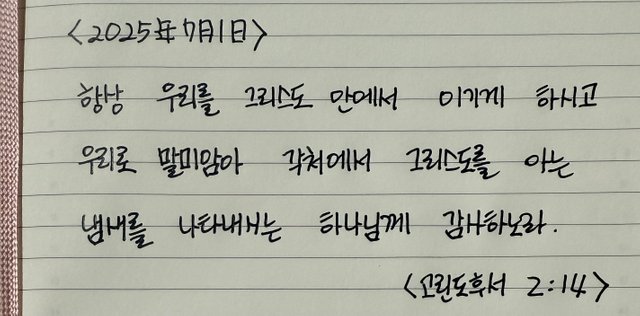 <2025年 7月 1日>
항상 우리를 그리스도 안에서 이기게 하시고
우리로 말미암아 각처에서 그리스도를 아는
냄새를 나타내시는 하나님께 감사하노라.
<고린도후서 2:14>